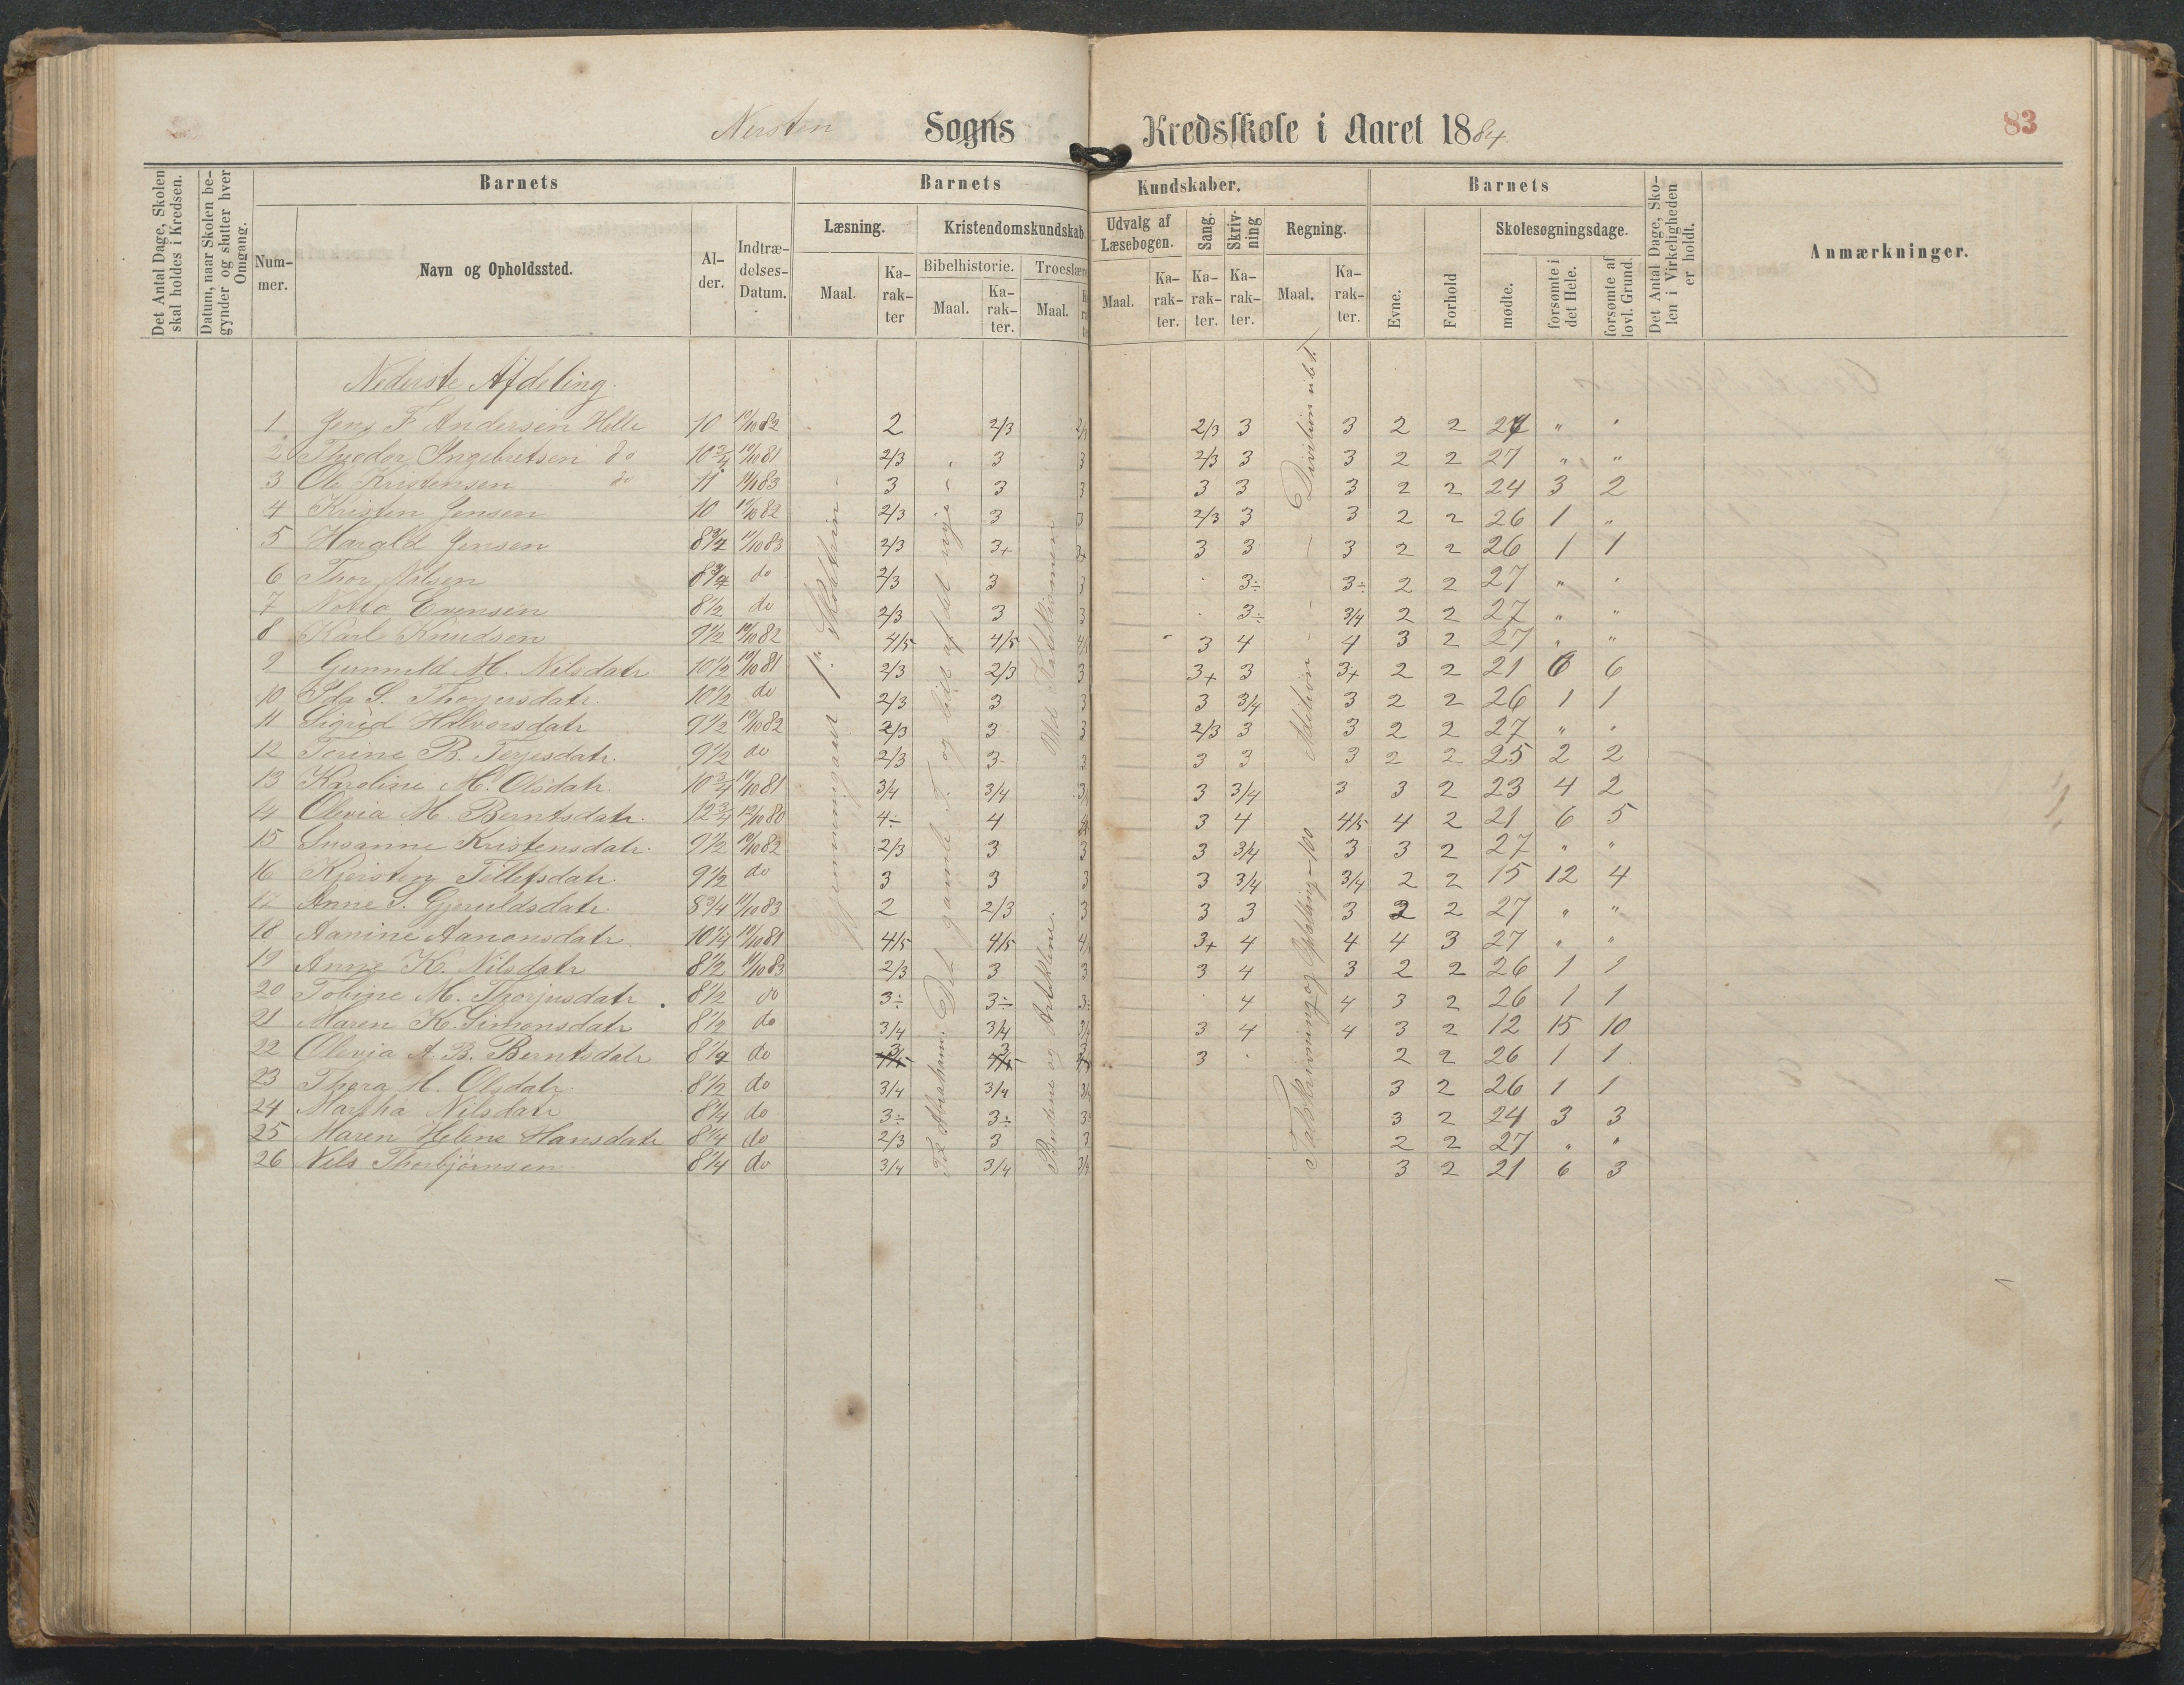 Nersten Sogns Kredsskole i Aaret 1884. 83
Det Antal Dage, Skolen skal holdes i Kredsen.
Datum, naar Skolen begynder og slutter hver Omgang.
Barnets Barnets Kundskaber. Barnets
Nummer. Navn og Opholdssted. Alder. Indtrædelses-Datum.
Læsning. Kristendomskundskab. Udvalg af Læsebogen. Sang. Skrivning Regning. Evne. Forhold Skolesøgningsdage.
Bibelhistorie. Troeslære
Maal. Karakter Maal. Karakter. Maal. Maal. Karakter. Karakter. Karakter. Maal. Karakter. mødte. forsømte i det Hele. forsømte af lovl. Grund.
Det Antal Dage, Skolen i Virkeligheden er holdt.
Anmærkninger.
Nederste Afdeling.
1 Jens F Andersen Helle 10 10/10 82 2 2/3 2/3 3 3 2 2 27 " "
2 Theodor Ingebretsen do 10 3/4 10/10 81 2/3 3 3 2/3 3 3 2 2 27 " "
3 Ole Kristensen do 11 3 3 3 3 3 3 2 2 24 3 2
4 Kristen Jensen 10 10/10 82 2/3 3 3 2/3 3 3 2 2 26 1 "
5 Harald Jensen 8 3/4 11/10 83 2/3 3+ 3+ 3 3 3 2 2 26 1 1
6 Thor Nilsen 8 3/4 do 2/3 3 3 3÷ 3÷ 2 2 27 " "
7 Evensen 8 1/2 do 2/3 3 3 3÷ 3/4 2 2 27 " "
8 Karl Knudsen 9 1/2 10/10 82 4/5 4/5 3 4 4 3 2 27 " "
9 Gunnild M. Nilsdatr 10 1/2 10/10 81 2/3 2/3 3 3+ 3 3+ 2 2 21 6 6
10 Ida S. Thorjusdatr. 10 1/2 do 2/3 3 3 3 3/4 3 2 2 26 1 1
11 Sigrid Halvorsdatr 9 1/2 10/10 82 2/3 3 3 2/3 3 3 2 2 27 " "
12 Torine B. Terjesdatr. 9 1/2 do 2/3 3 3 3 3 3 2 2 25 2 2
13 Karoline M. Olsdatr. 10 3/4 10/10 81 3/4 3/4 3 3/4 3 3 2 23 4 2
14 Olevia M. Berntsdatr. 12 3/4 12/10 80 4÷ 4 4 3 4 4/5 4 2 21 6 5
15 Susanne Kristensdatr. 9 1/2 10/10 82 2/3 3 3 3 3/4 3 3 2 27 " "
16 Kjersten Tellefsdatr. 9 1/2 do 3 3 3 3 3/4 3/4 2 2 15 12 4
17 Anne S. Gjeruldsdatr. 8 3/4 11/10 83 2 2/3 3 3 3 3 2 2 27 " "
18 Aanine Aanonsdatr. 10 1/4 10/10 81 4/5 4/5 3+ 4 4 4 3 27 " "
19 Anne K. Nilsdatr 8 1/2 11/10 83 2/3 3 3 3 4 3 2 2 26 1 1
20 Tobine M. Thorjusdatr. 8 1/2 do 3÷ 3÷ 3÷ 4 4 3 2 26 1 1
21 Maren K. Simonsdatr 8 1/2 do 3/4 3/4 3/4 3 4 4 3 2 12 15 10
22 Olevia A. B. Berntsdatr 8 1/2 do 3 3 3 3 2 2 26 1 1
23 Thora H. Olsdatr. 8 1/2 do 3/4 3/4 3/4 3 2 26 1 1
24 Martha Nilsdatr 8 1/4 do 3÷ 3÷ 3÷ 3 2 24 3 3
25 Maren Helene Hansdatr 8 1/4 do 2/3 3 3 2 2 27 " "
26 Nils Thorbjørnsen 8 1/4 do 3/4 3/4 3/4 3 2 21 6 3
Gjennemgaaet 1ste Skoletrin
Til Abraham. Det gamle T. og lidt af det nye
Budene og Artiklene. Med Katekismen
Talskrivning og Opstilling – 100 Addition – Division